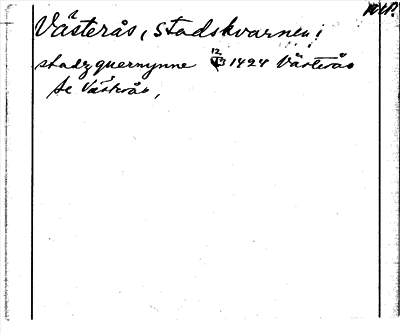 Västerås, stadskvarnen i
stadzquernynne 12/3 1424 Västerås
Se Västerås,